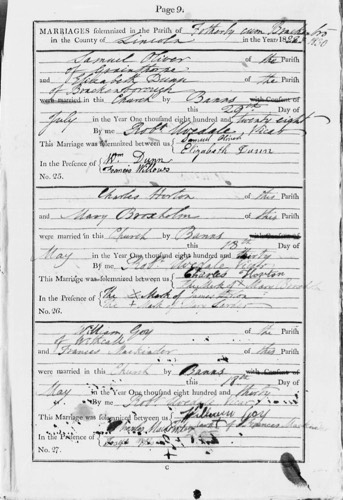 Page 9.
MARRIAGES solemnized in the Parish of Fotherby cum Brackenbro
in the County of Lincoln in the Year 18
Samuel Oliver of the Parish
of
and Elizabeth Dunn of the Parish
of Brackenborough
were married in this Church by Banns with Consent of
this Day of
July in the Year One thousand eight hundred and twenty eight
By me Robt Uvedale Vicar
This Marriage was solemnized between us Samuel Oliver
Elizabeth Dunn
In the Presence of Wm Dunn
Francis Willows
No. 25.
Charles Horton of this Parish
and Mary Broxholm of this Parish
were married in this Church by Banns
this 18th Day of
May in the Year One thousand eight hundred and thirty
By me Robt Uvedale Vicar
This Marriage was solemnized between us Charles Horton
The Mark of X Mary
In the Presence of The X Mark of James
The X Mark of
No. 26.
William Goy of the Parish
of Withcall
and Frances of this Parish
were married in this Church by Banns
this Day of
May in the Year One thousand eight hundred and thirty
By me Robt Uvedale Vicar
This Marriage was solemnized between us William Goy
mark of Frances
In the Presence of Charles
Joseph
No. 27.
C